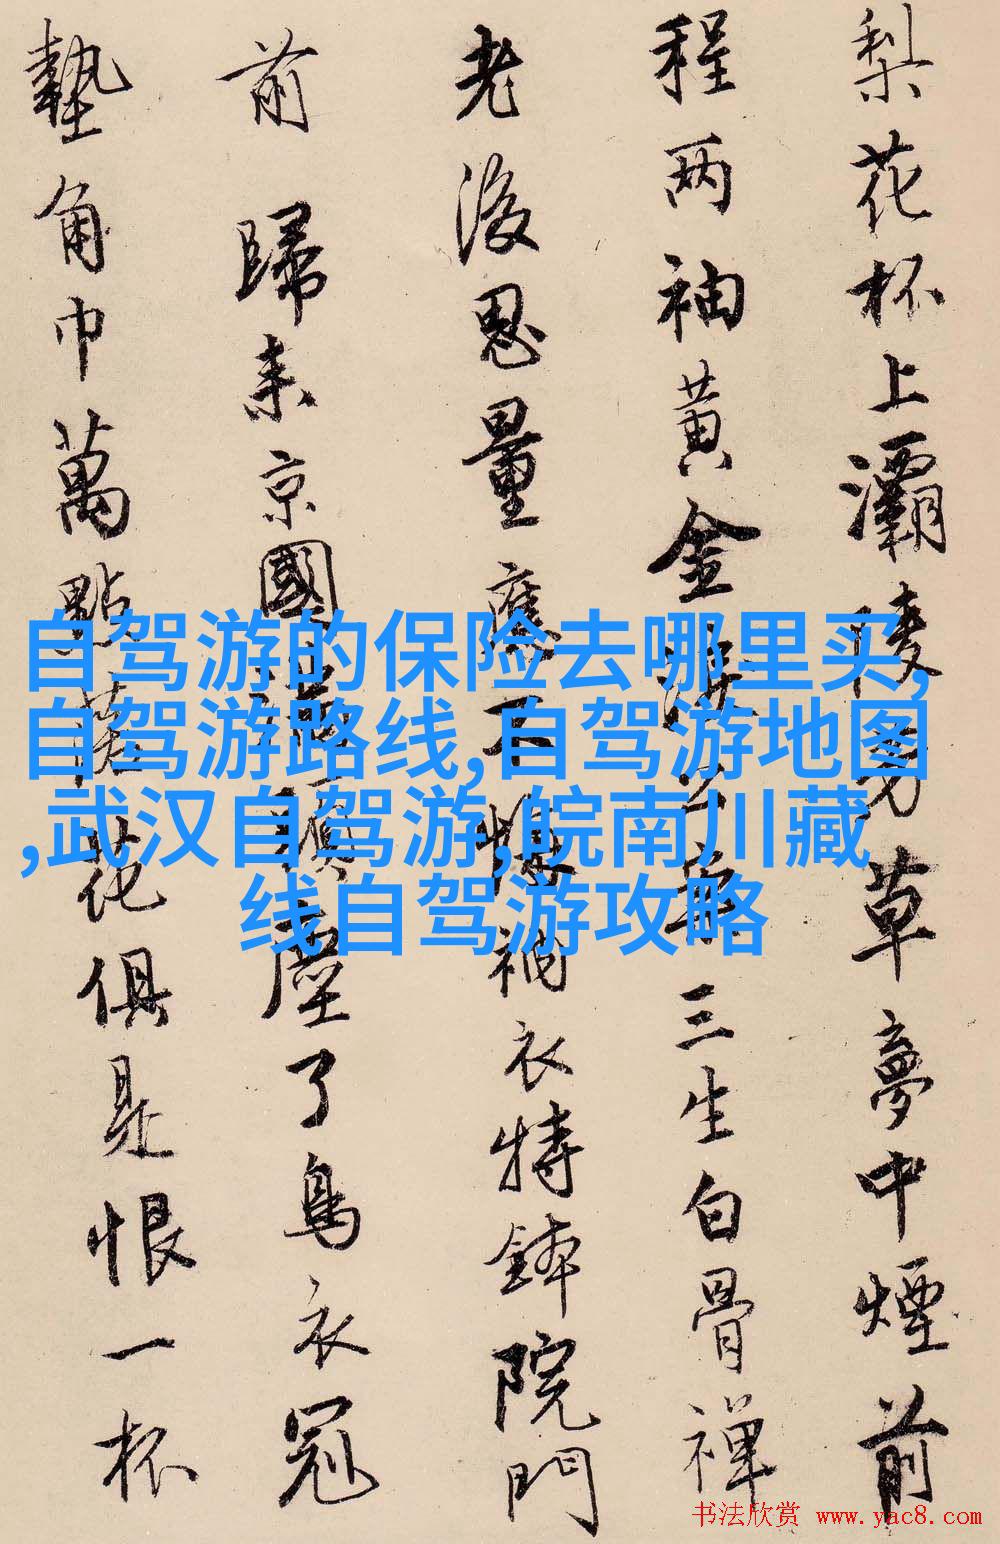 梨花杯上灞陵芳草夢中煙前
程两袖黄金淚公案三生白骨禪
老後思量應不悔衲衣持鉢院門
前 歸来京國塵了烏衣冠
墊角巾萬點落花俱是恨一杯
自驾游的保险去哪里买,
自驾游路线,自驾游地图
,武汉自驾游,皖南川藏
线自驾游攻略
书法欣赏 www.yac8.com